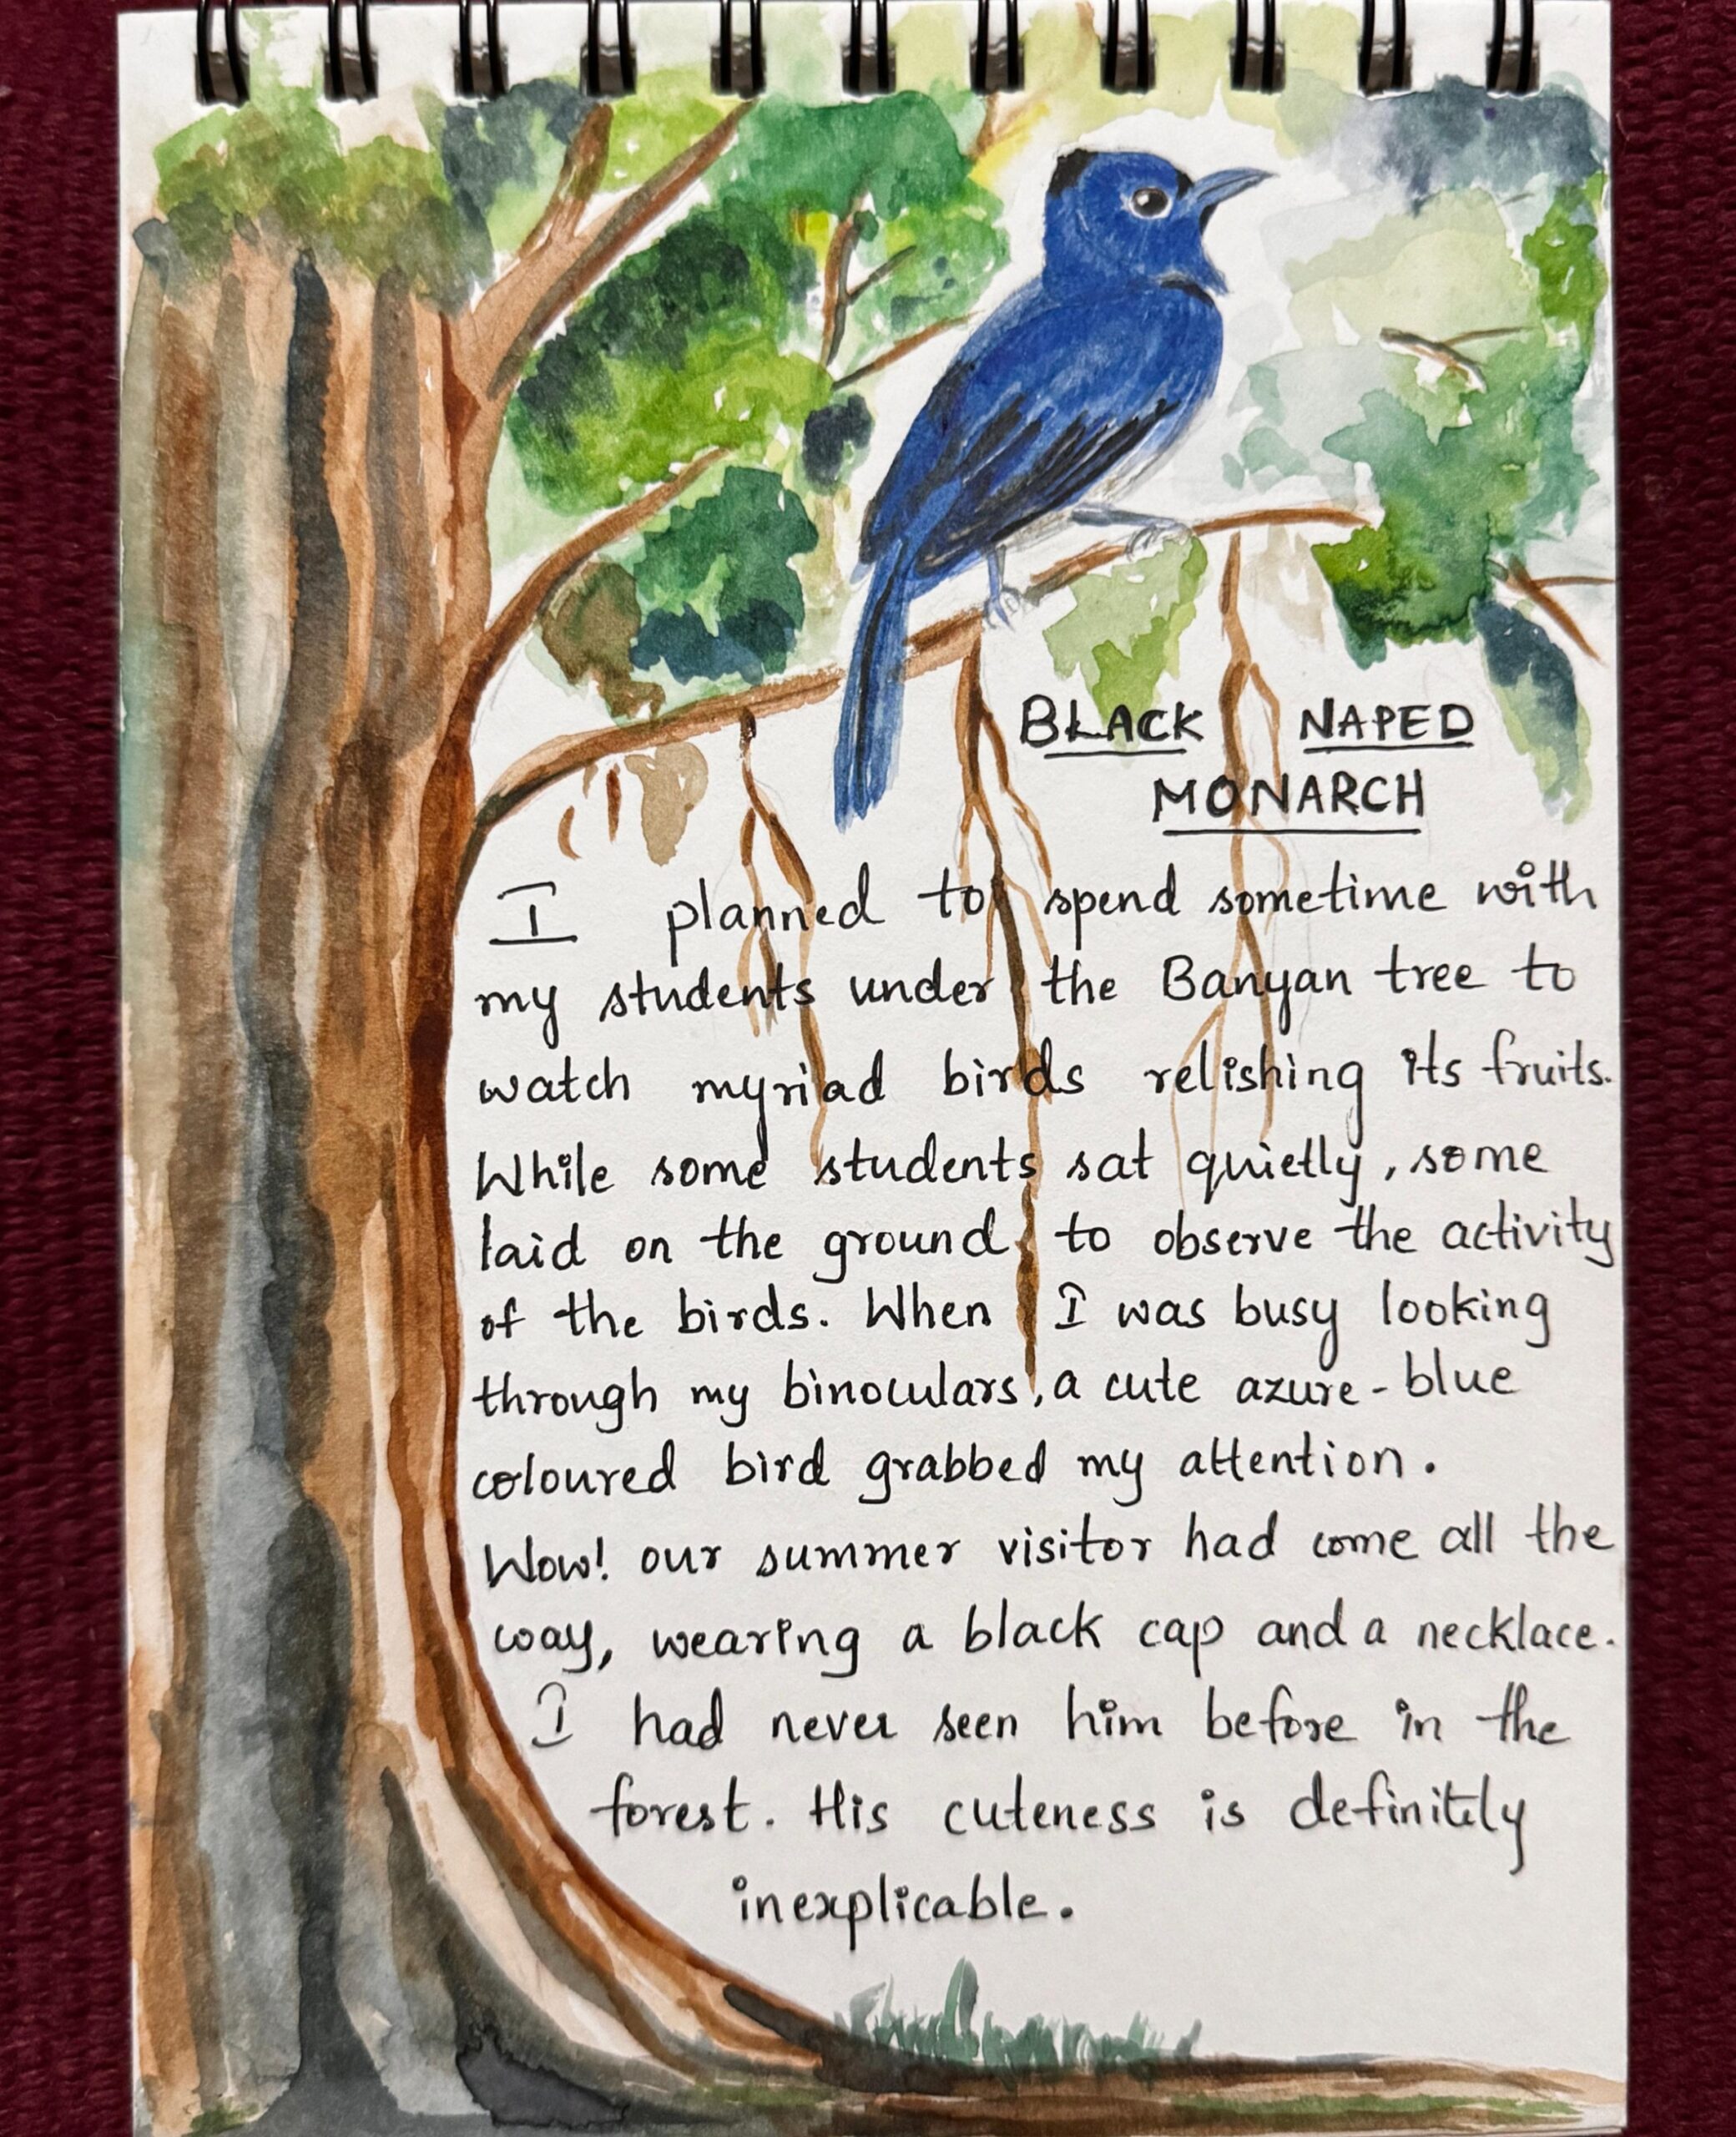 BLACK NAPED
MONARCH
I planned to spend sometime with
my students under the Banyan tree to
watch myriad birds relishing its fruits.
While some students sat quietly, some
laid on the ground to observe the activity
of the birds. When I was busy looking
through my binoculars, a cute azure-blue
coloured bird grabbed my attention.
Wow! our summer visitor had come all the
way, wearing a black cap and a necklace.
I had never seen him before in the
forest. His cuteness is definitely
inexplicable.